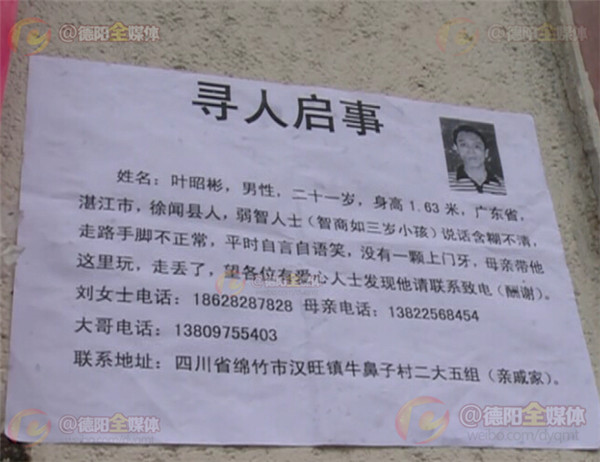 @德阳全媒体
寻人启事
姓名：叶昭彬，男性，二十一岁，身高1.63米，广东省，
湛江市，徐闻县人，弱智人士（智商如三岁小孩）说话含糊不清，
走路手脚不正常，平时自言自语笑，没有一颗上门牙，母亲带他
这里玩，走丢了，望各位有爱心人士发现他请联系致电（酬谢）。
刘女士电话：18628287828 母亲电话：13822568454
大哥电话：13809755403
联系地址：四川省绵竹市汉旺镇牛鼻子村二大五组（亲戚家）。
@德阳全媒体
weibo.com/dyqmt